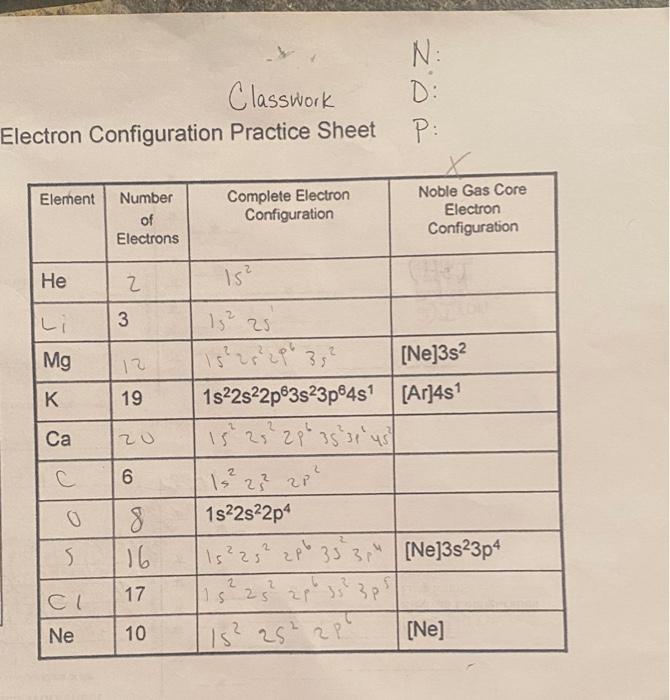 N:
Classwork D:
Electron Configuration Practice Sheet P:
X
Element Number of Electrons Complete Electron Configuration Noble Gas Core Electron Configuration
He 2 1s²
Li 3 1s² 2s¹
Mg 12 1s² 2s² 2p⁶ 3s² [Ne]3s²
K 19 1s²2s²2p⁶3s²3p⁶4s¹ [Ar]4s¹
Ca 20 1s² 2s² 2p⁶ 3s² 3p⁶ 4s²
C 6 1s² 2s² 2p²
O 8 1s²2s²2p⁴
S 16 1s² 2s² 2p⁶ 3s² 3p⁴ [Ne]3s²3p⁴
Cl 17 1s² 2s² 2p⁶ 3s² 3p⁵
Ne 10 1s² 2s² 2p⁶ [Ne]